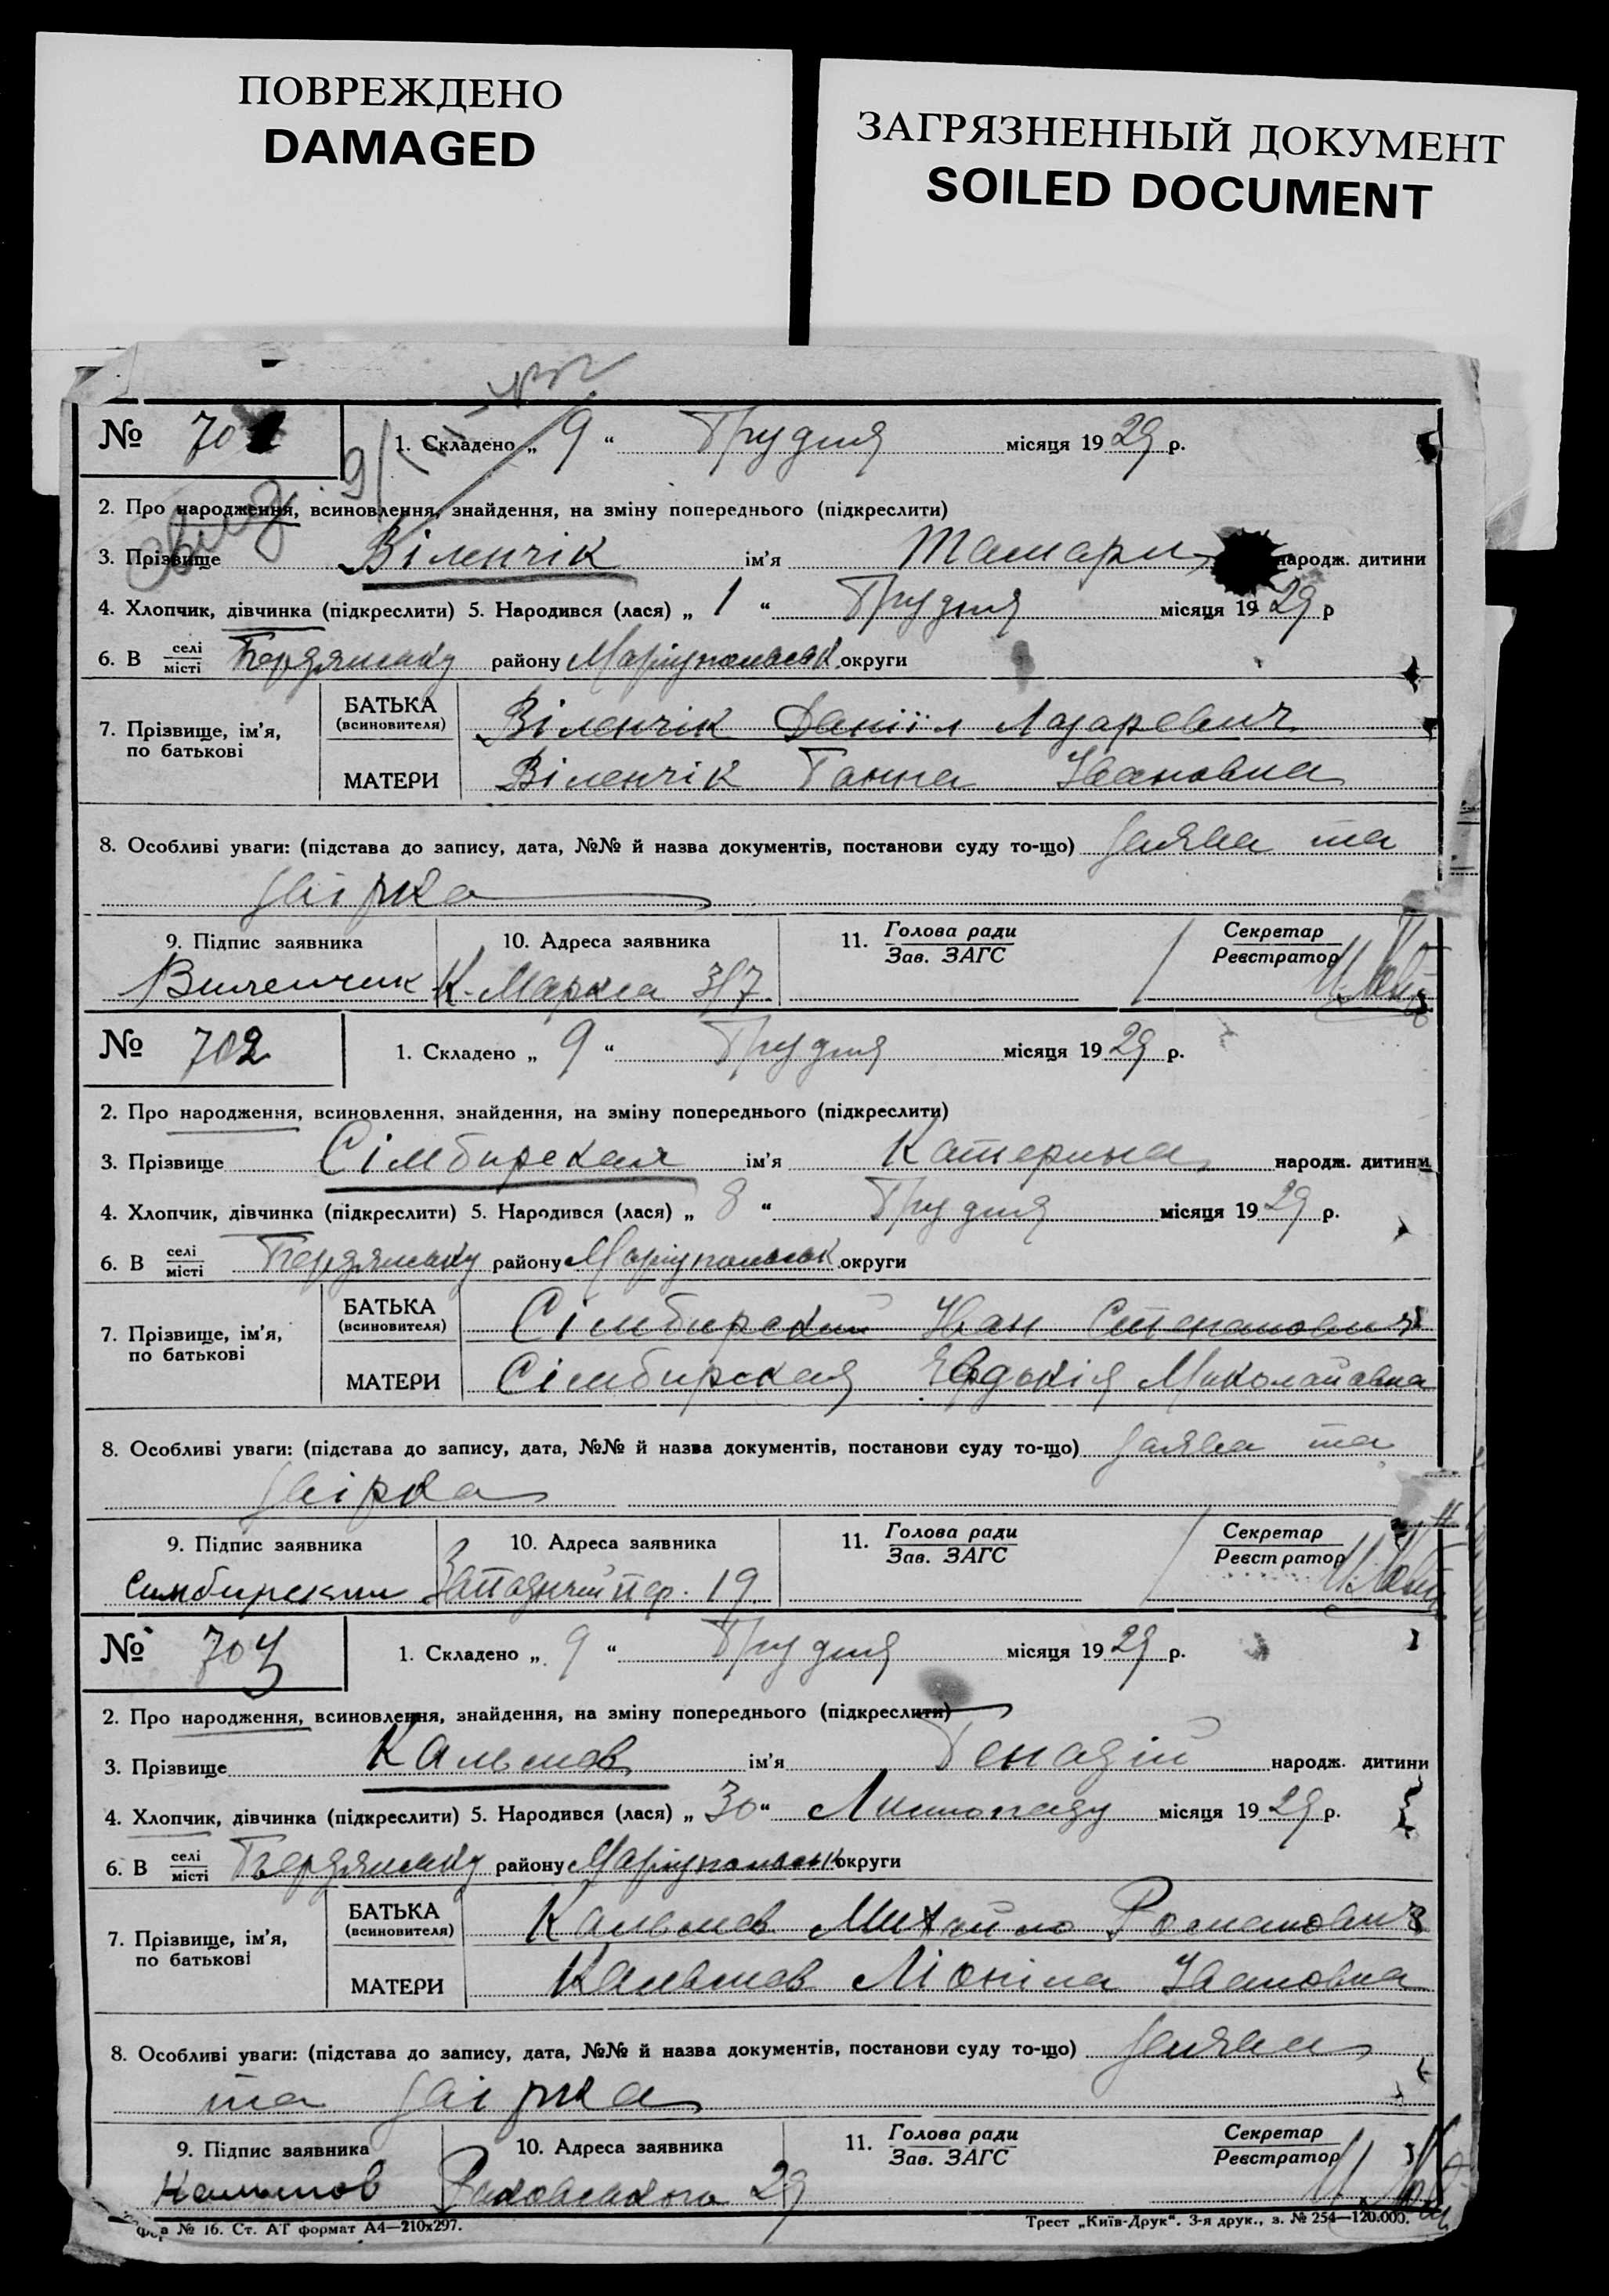 ПОВРЕЖДЕНО
DAMAGED
ЗАГРЯЗНЕННЫЙ ДОКУМЕНТ
SOILED DOCUMENT
№ 701 1. Складено „ 9 “ Грудня місяця 1929 р.
2. Про народження, всиновлення, знайдення, на зміну попереднього (підкреслити)
3. Прізвище Віленчік ім'я Тамара народж. дитини
4. Хлопчик, дівчинка (підкреслити) 5. Народився (лася) „ 1 “ Грудня місяця 1929 р
6. В селі/місті Бердянську району Маріупольськ округи
7. Прізвище, ім'я, по батькові
БАТЬКА (всиновителя) Віленчік Даніїл Лазаревич
МАТЕРИ Віленчік Ганна Івановна
8. Особливі уваги: (підстава до запису, дата, №№ й назва документів, постанови суду то-що) Заява та
звірка
9. Підпис заявника 10. Адреса заявника 11. Голова ради/Зав. ЗАГС Секретар/Реєстратор
Виленчик К-Маркса 37
№ 702 1. Складено „ 9 “ Грудня місяця 1929 р.
2. Про народження, всиновлення, знайдення, на зміну попереднього (підкреслити)
3. Прізвище Сімбирская ім'я Катерина народж. дитини
4. Хлопчик, дівчинка (підкреслити) 5. Народився (лася) „ 8 “ Грудня місяця 1929 р.
6. В селі/місті Бердянську району Маріупольськ округи
7. Прізвище, ім'я, по батькові
БАТЬКА (всиновителя) Сімбирский Іван Степанович
МАТЕРИ Сімбирская Явдокія Миколаївна
8. Особливі уваги: (підстава до запису, дата, №№ й назва документів, постанови суду то-що) Заява та
звірка
9. Підпис заявника 10. Адреса заявника 11. Голова ради/Зав. ЗАГС Секретар/Реєстратор
Симбирский Западний пер. 19
№ 703 1. Складено „ 9 “ Грудня місяця 1929 р.
2. Про народження, всиновлення, знайдення, на зміну попереднього (підкреслити)
3. Прізвище Кальмов ім'я Генадій народж. дитини
4. Хлопчик, дівчинка (підкреслити) 5. Народився (лася) „ 30 “ Листопаду місяця 1929 р.
6. В селі/місті Бердянську району Маріупольськ округи
7. Прізвище, ім'я, по батькові
БАТЬКА (всиновителя) Кальмов Михайло Романович
МАТЕРИ Кальмов Ліоніла Івановна
8. Особливі уваги: (підстава до запису, дата, №№ й назва документів, постанови суду то-що) Заява
та звірка
9. Підпис заявника 10. Адреса заявника 11. Голова ради/Зав. ЗАГС Секретар/Реєстратор
Кальмов Раковського 29
№ 16. Ст. АГ формат А4—210х297. Трест „Київ-Друк“. 3-я друк., з. № 254—120.000.